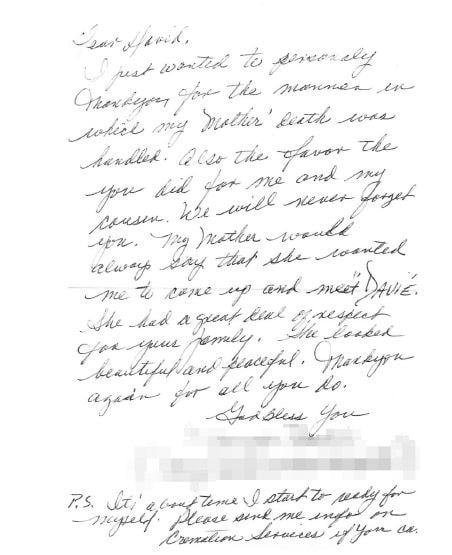 Dear David,
I just wanted to personaly
thankyou for the manner in
which my Mother' death was
handled. Also the favor the
you did for me and my
cousin. We will never forget
you. My Mother would
always say that she wanted
me to come up and meet "DAVIE".
She had a great deal of respect
for your family. She looked
beautiful and peaceful. Thankyou
again for all you do.
God Bless You
P.S. It's about time I start to ready for
myself. Please send me info on
Cremation Services if you ca.